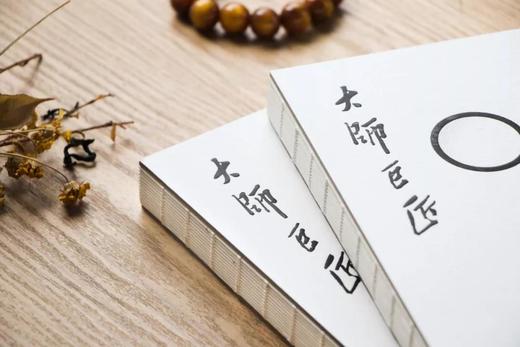 大師巨匠
大師巨匠